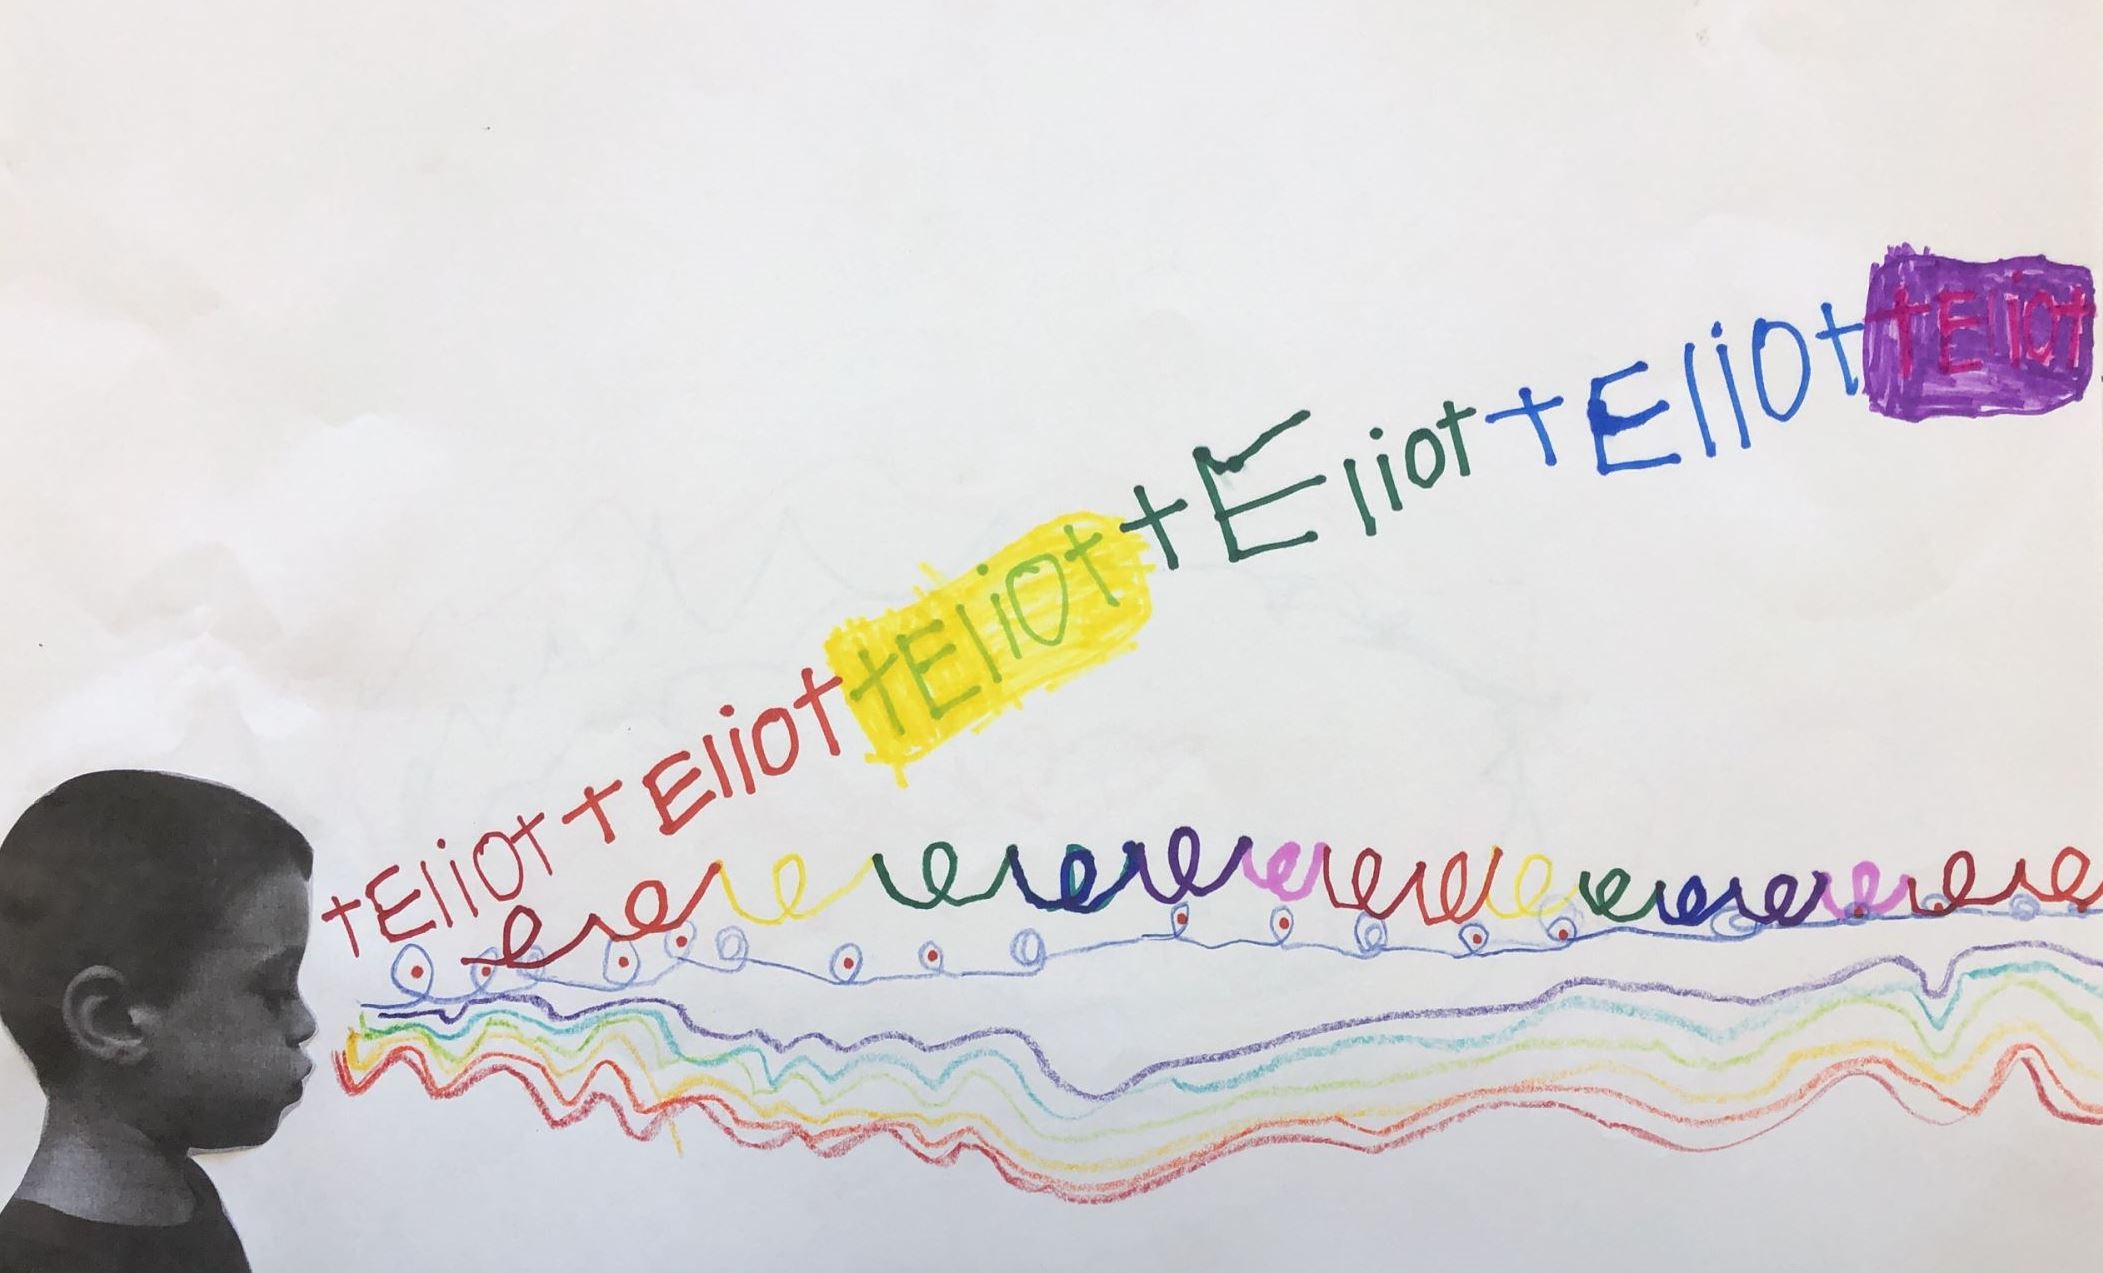 tEliOt tEliot tEliOt tEliot tEliOt tEliot